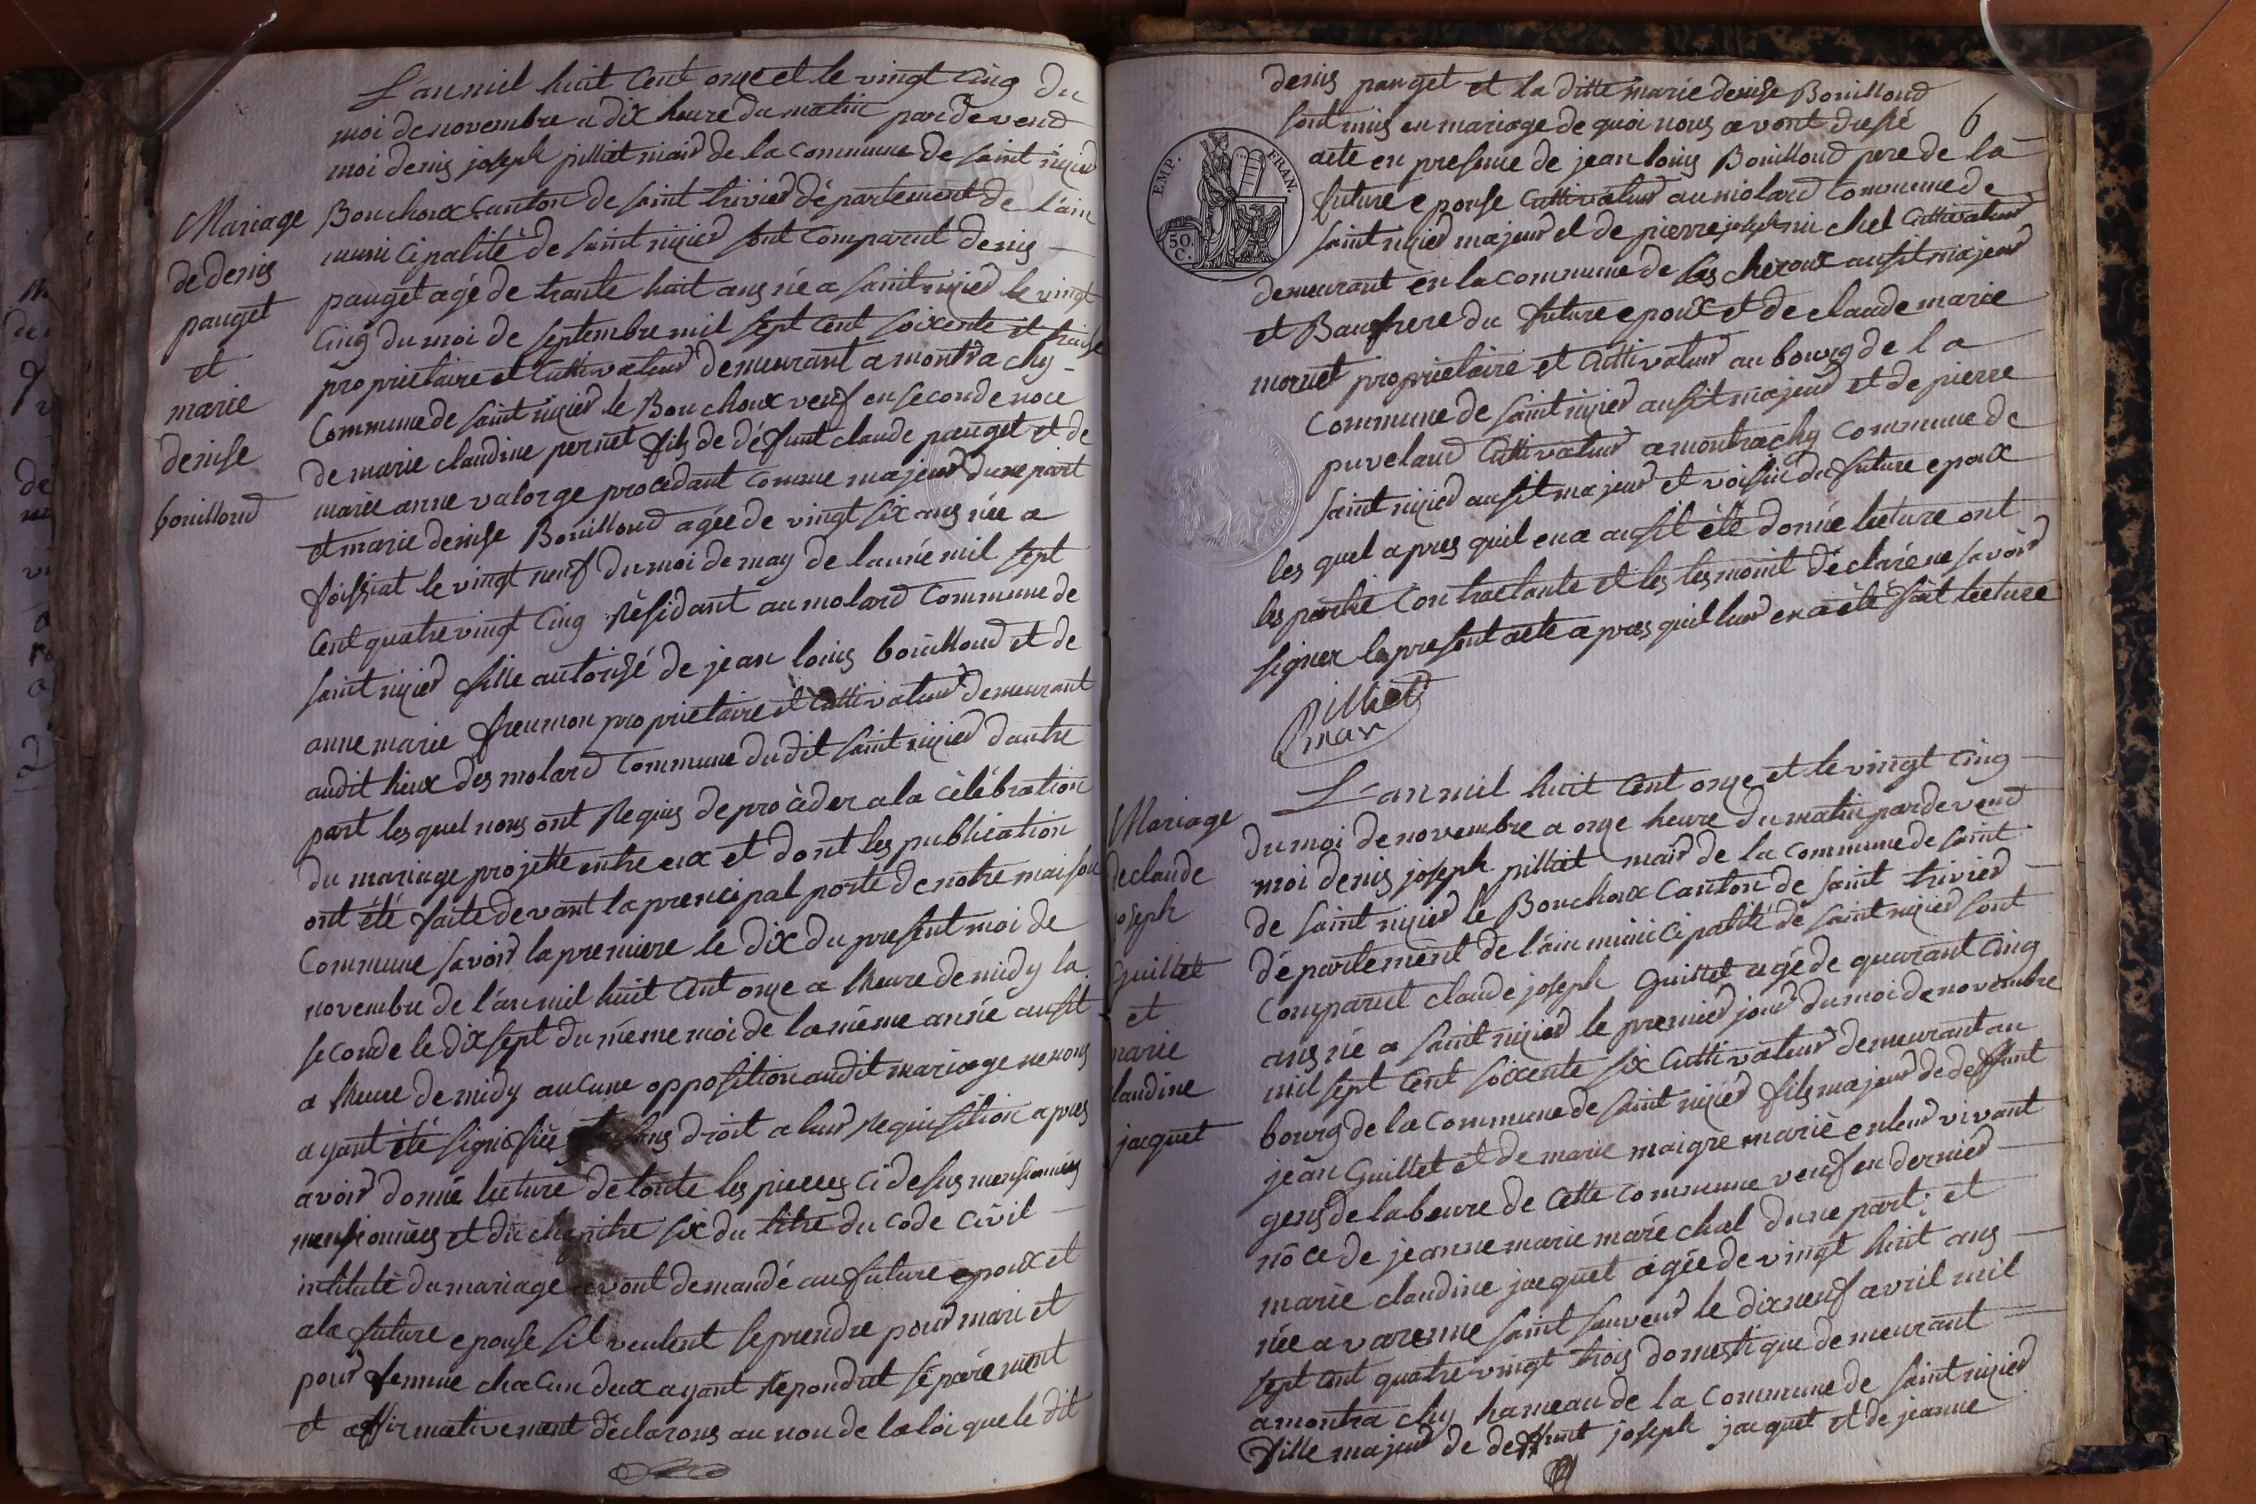 L'an mil huit Cent onze et le vingt Cinq du
moi de novembre a dix heure du matin pardevend
moi denis joseph pilliat mair de la Commune de saint nizied
Bouchoux Canton de saint trivier département de l'ain
municipalité de saint nizied sont Comparut denis
pauget agé de trante huit ans né a saint nizied le vingt
Cinq du moi de septembre mil sept Cent soixente et traise
proprietaire et Cultivateur demeurant a montrachy
Commune de saint nizied le Bouchoux veuf en seconde noce
de marie claudine pernet fils de défunt claude pauget et de
marie anne valorge procedant Comme majeur dune part
et marie denise Bouilloud agée de vingt six ans née a
foissiat le vingt neuf du moi de may de lannée mil sept
Cent quatre vingt Cinq Résidant au molard Commune de
saint nizied fille autorisé de jean louis bouilloud et de
anne marie freumon proprietaire et Cultivateur demeurant
audit lieux des molard Commune dudit saint nizied dautre
part les quel nous ont Requis de procèder a la cèlébration
du mariage projette entre eux et dont les publication
ont été faite devant la prencipal porte de notre maison
Commune savoir la premiere le dix du present moi de
novembre de l'an mil huit Cent onze a lheure de midy la
seconde le dix sept du méme moi de la méme année ausit
a lheure de midy aucune opposition audit mariage ne nous
ayant été signifiée droit a leur Requisition apres
avoir donné lecture de toute les pieces Ci desus mensionnées
mensionnées et du chapitre six du titre du Code Civil
intitulé du mariage avont demandé au future epoux et
a la future epouse sil veulent se prendre pour mari et
pour femme chacun deux ayant Repondut séparèment
et affirmativement déclarons au non de la loi que le dit
Mariage
de denis
pauget
et
marie
denise
bouilloud
6
denis pauget et la ditte marie denise Bouilloud
sont unis en mariage de quoi nous avont dresé
acte en presence de jean louis Bouilloud pere de la
future epouse Cultivateur au molard Commune de
saint nizied majeur et de pierre joseph michel Cultivateur
demeurant en la commune de les cheroux ausit majeur
et Baufrere du future epoux et de claude marie
moruet proprietaire et Cultivateur au bourg de la
Commune de saint nizied ausit majeur et de pierre
puveland Cultivateur a montrachy Commune de
saint nizied ausit majeur et voisin du future epoux
les quel apres quil en a ausit été donné lecture ont
les partie Contractante et les tesmoint déclaré ne savoir
signer le present acte apres quil leur en a été fait lecture
Pilliat
mair
EMP. FRAN.
50.
C.
Mariage
de claude
joseph
Guillet
et
marie
laudine
jacquet
L'an mil huit Cent onze et le vingt Cinq
du moi de novembre a onze heure du matin pardevend
moi denis joseph pilliat mair de la Commune de saint
de saint nizied le Bouchoux Canton de saint trivied
département de l'ain municipalité de saint nizied sont
Comparut claude joseph Guillet agé de quarant Cinq
ans né a saint nizied le premier jour du moi de novembre
mil sept Cent soixente six Cultivateur demeurant au
bourg de la Commune de saint nizied fils majeur de deffunt
jean Guillet et de marie maigre mariè en leur vivant
gens de labeure de Cette Commune veuf en dernied
nôce de jeanne marie maréchal dune part; et
marie claudine jacquet agée de vingt huit ans
née a varenne saint sauveur le dix neuf avril mil
sept cent quatre vingt trois domestique demeurant
a montrachy hameau de la Commune de saint nizied
fille majeur de deffunt joseph jacquet et de jeanne